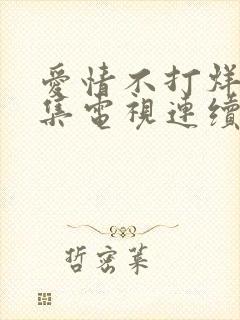 愛情不打烊
集電視連續
哲密萊